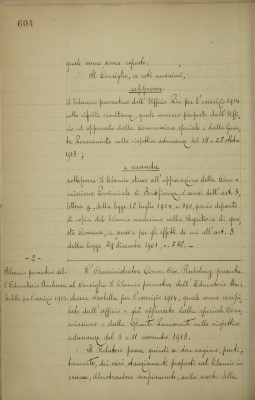 604
quale venne sopra esposto.
Il Consiglio, a voti unanimi,
approva
il bilancio preventivo dell'Ufficio Pio per l'esercizio 1914
nelle cifre quale venne proposto dall'Uffi-
cio ed approvato dalla Commissione speciale e dalla Giun-
ta Permanente nelle rispettive adunanze del 18 e 28 ottobre
1913;
e manda
sottoporre il bilancio stesso all'approvazione della Com-
missione Provinciale di Beneficenza, a sensi dell'art. 3,
lettera della legge 18 luglio 1904, n. 390, previo deposito
di copia del bilancio medesimo nella Segreteria di que-
sto Comune, a senso e per gli effetti di cui all'art. 3
della legge 29 dicembre 1901, n.
- 2 -
Bilancio preventivo del-
l'Educatorio per l'esercizio 1914.
L'Amministratore Comm. presenta
al Consiglio il bilancio preventivo dell'Educatorio
per l'esercizio 1914, quale venne compi-
lato dall'ufficio e già approvato dalla speciale Com-
missione e dalla Giunta Permanente nelle rispettive
adunanze del 3 e 11 novembre 1913.
Il Relatore passa quindi a dar ragione, parti-
tamente, dei vari stanziamenti proposti nel bilancio in
esame, illustrandone ampiamente, nella scorta della